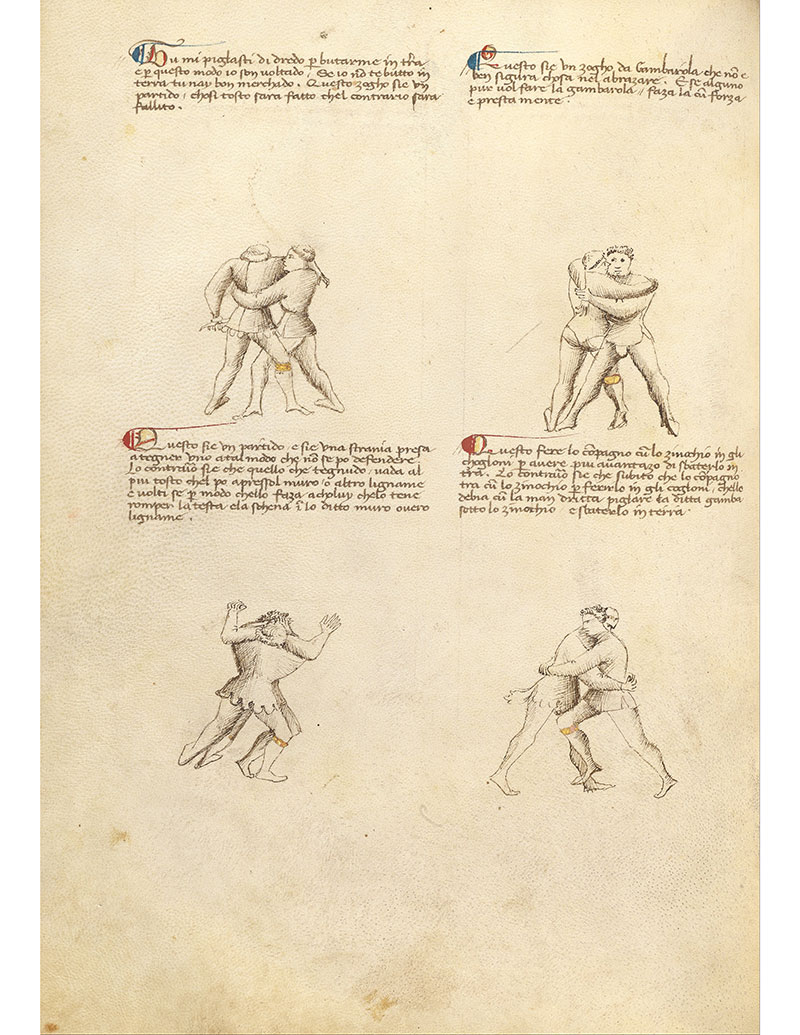 Tu mi piglasti di dredo p butarme in tr̃a
e p questo modo io son voltado, Se io nõ te butto in
terra tu nay bon merchado. Questo zogho sie vn
partido, chosi tosto sara fatto chel contrario sara
fallito.
Questo sie vn zogho da Gambarola che nõ e
ben sigura chosa nel abrazare. E se alguno
pur vol fare la gambarola, faza la cũ forza
e presta mente.
Questo sie vn partido, e sie vna strania presa
a tegner vno a tal modo che nõ se po defendere.
Lo contrario sie che quello che tegnudo, vada al
piu tosto chel po apresso lo muro, o altro ligname
e volti se p modo chello faza, a cholui chelo tene
romper la testa e la schena ĩ lo ditto muro overo
ligname.
Questo fere lo cõpagno cũ lo zinochio in gli
chogloni p avere piu avantazo di sbaterlo in
tr̃a. Lo contrario sie che subito che lo cõpagno
tra cũ lo zinochio p ferirlo in gli cogloni, chello
debia cũ la man dritta piglare la ditta gamba
sotto lo zinochio e sbaterlo in terra.